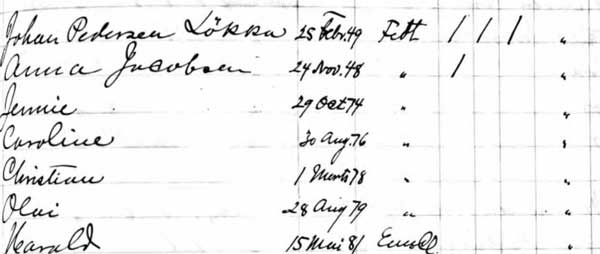 Johan Pedersen Lökka 25 Febr. 49 Fett / / / "
Anna Jacobsen 24 Nov. 48 " / "
Jennie 29 Oct 74 " "
Caroline 30 Aug. 76 " "
Christian 1 78 " "
Olai 28 Aug 79 " "
Harald 15 Mai 81 "